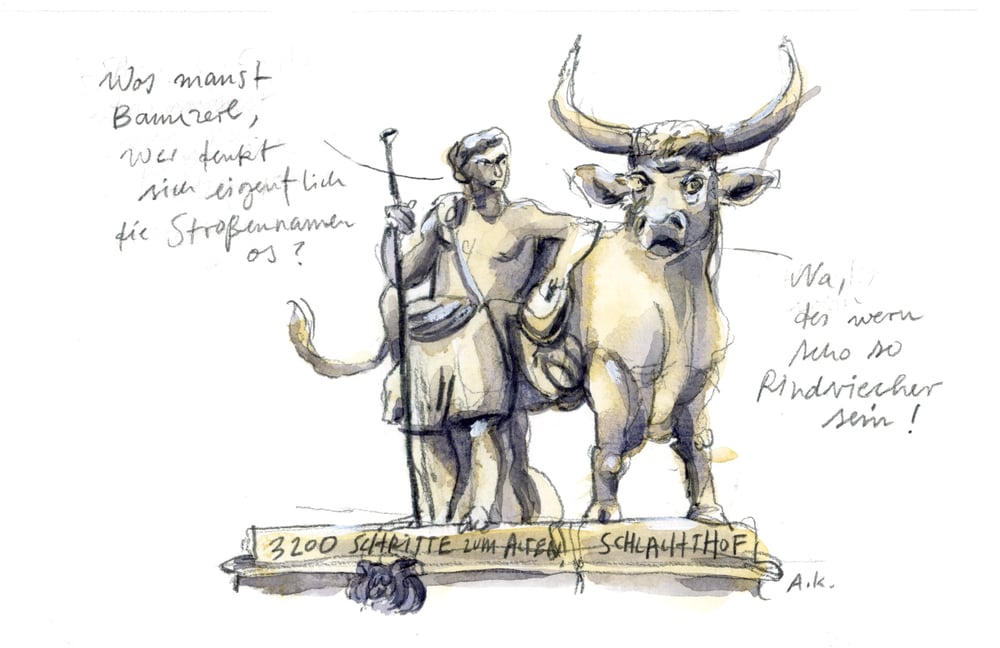 Wos manst
Bamzerl,
wer denkt
sich eigentlich
die Stroßennamen
os?
Na,
des wern
scho so
Rindviecher
sein!
3200 SCHRITTE ZUM ALTEN SCHLACHTHOF
A.K.